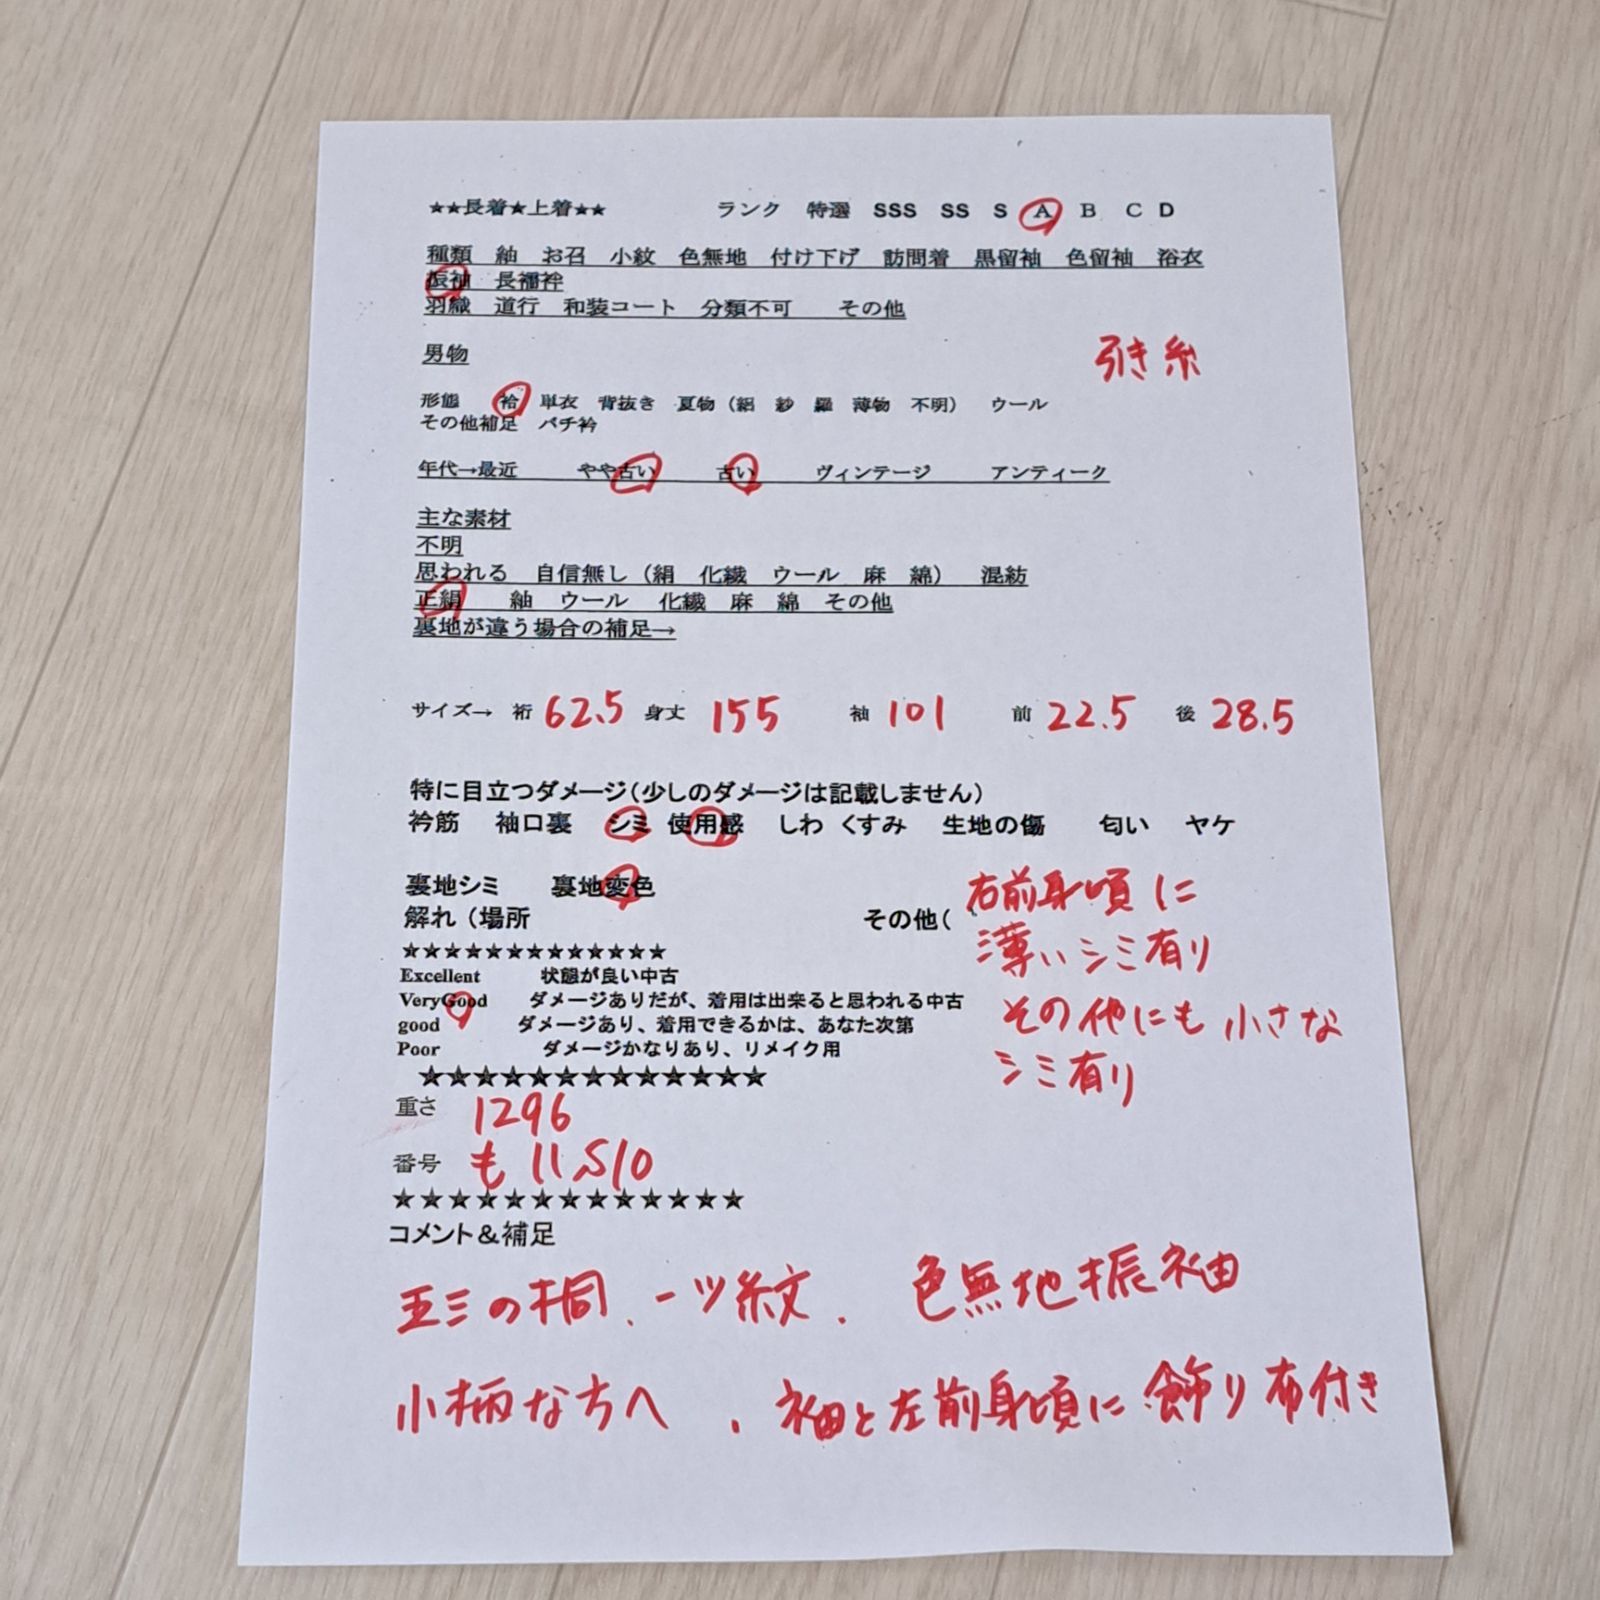 ★★長着★上着★★ ランク 特選 SSS SS S A B C D
種類 紬 お召 小紋 色無地 付け下げ 訪問着 黒留袖 色留袖 浴衣
振袖 長襦袢
羽織 道行 和装コート 分類不可 その他
男物
引き糸
形態 袷 単衣 背抜き 夏物（絽 紗 羅 薄物 不明） ウール
その他補足 バチ衿
年代→最近 やや古い 古い ヴィンテージ アンティーク
主な素材
不明
思われる 自信無し（絹 化繊 ウール 麻 綿） 混紡
正絹 紬 ウール 化繊 麻 綿 その他
裏地が違う場合の補足→
サイズ→ 裄 62.5 身丈 155 袖 101 前 22.5 後 28.5
特に目立つダメージ（少しのダメージは記載しません）
衿筋 袖口裏 シミ 使用感 しわ くすみ 生地の傷 匂い ヤケ
裏地シミ 裏地変色
解れ（場所 その他（
右前身頃に
薄いシミ有り
その他にも小さな
シミ有り
★★★★★★★★★★★★★
Excellent 状態が良い中古
VeryGood ダメージありだが、着用は出来ると思われる中古
good ダメージあり、着用できるかは、あなた次第
Poor ダメージかなりあり、リメイク用
★★★★★★★★★★★★★
重さ 1296
番号 も11510
★★★★★★★★★★★★★
コメント＆補足
五三の桐、一ツ紋. 色無地振袖
小柄な方へ . 袖と左前身頃に飾り布付き